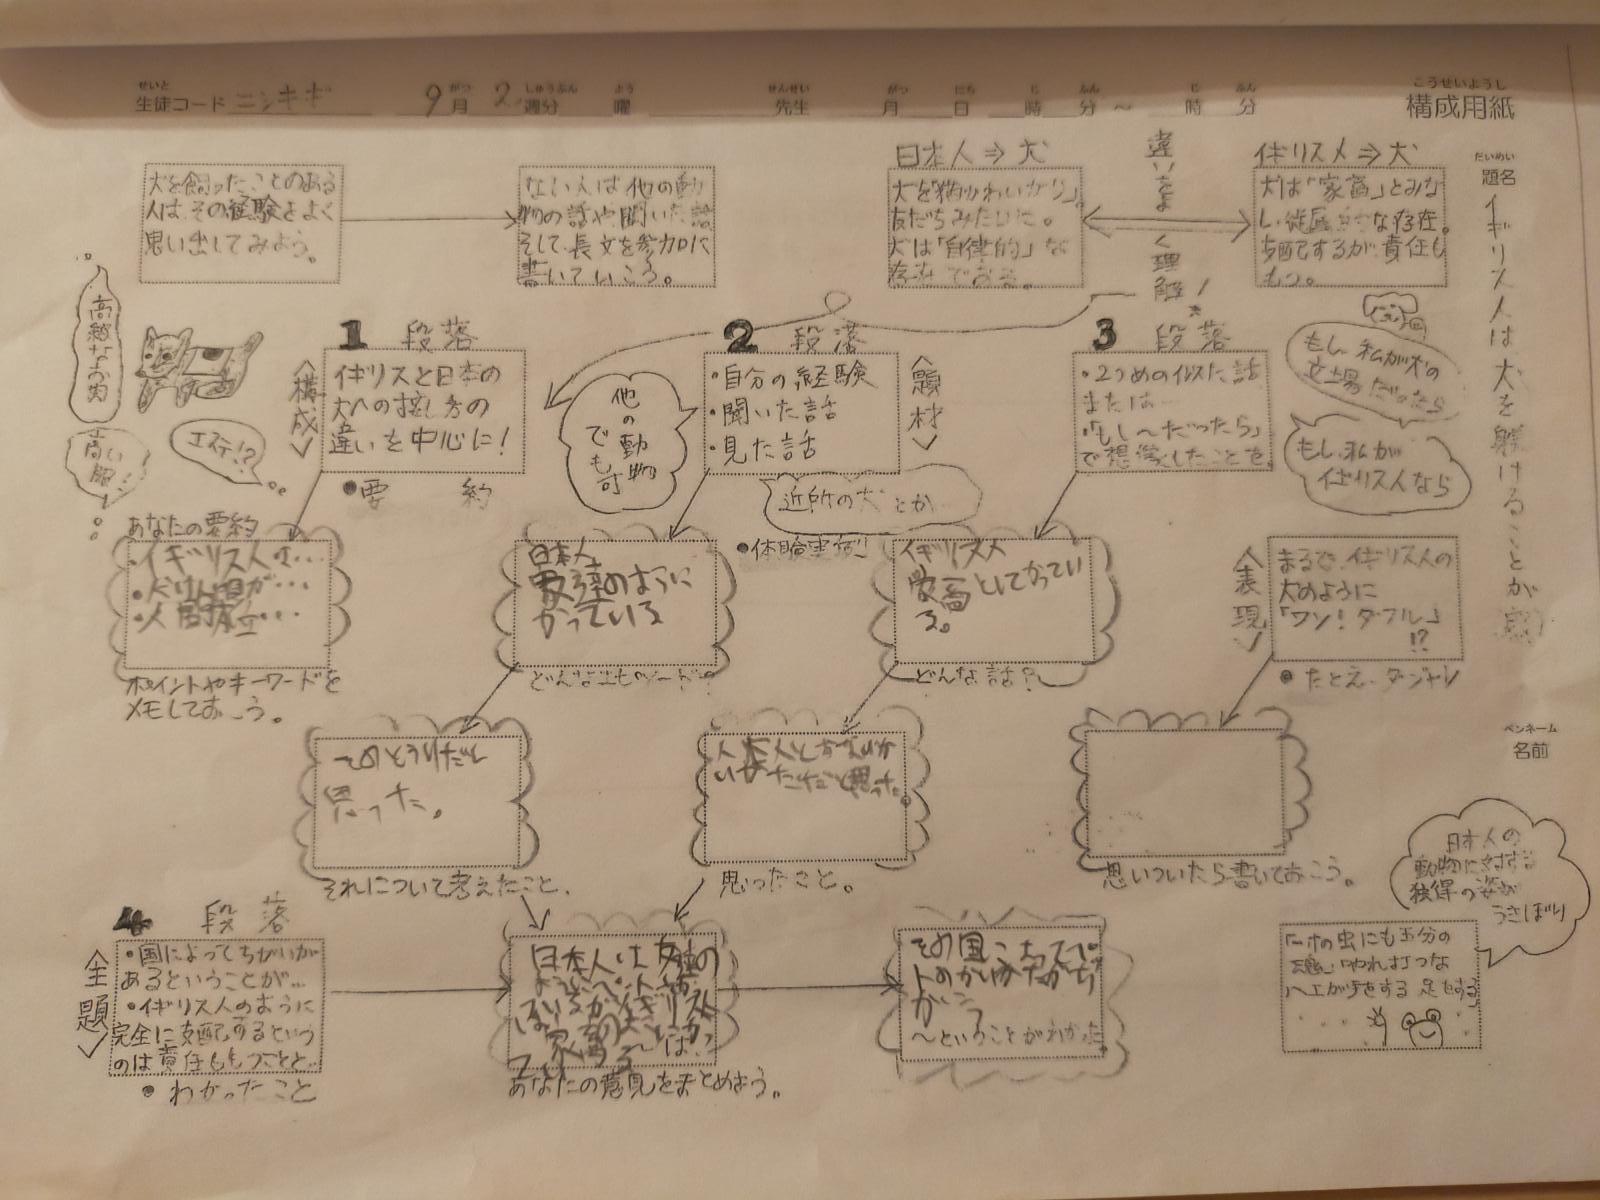 せいと
生徒コード ニシキギ
9月 2週分 曜
先生 月 日 時 分 ～ 時 分
こうせいようし
構成用紙
だいめい
題名
イギリス人は犬を躾けることが
ペンネーム
名前
犬を飼ったことのある
人は、その経験をよく
思い出してみよう。
ない人は他の動
物の話や聞いた話
そして、長文を参加に
書いていこう。
日本人⇒犬
犬を「猫かわいがり」。
友だちみたいに。
犬は「自律的」な
存在である。
違いをよく理解！
イギリス人⇒犬
犬は「家畜」とみな
し、従属的な存在。
支配するが、責任も
もつ。
高級なお肉
高い服！
エステ！？
1 段落
＜構成＞
イギリスと日本の
犬への接し方の
違いを中心に！
●要 約
他の動物でも可
2 段落
＜題材＞
・自分の経験
・聞いた話
・見た話
近所の犬とか
●体験実例
3 段落
・2つめの似た話
または…
・「もし～だったら」
で想像したことを。
もし、私が犬の
立場だったら
もし、私が
イギリス人なら
＜表現＞
まるで、イギリス人の
犬のように
「ワン！ダフル」
!?
●たとえ、ダジャレ
あなたの要約
・イギリス人は…
・犬は人間が…
・人間が…
ポイントやキーワードを
メモしておこう。
日本人
友達のように
かっている
どんなエピソード？
イギリス人
家畜としてかってい
る。
どんな話？
そのとうりだと
思った。
それについて考えたこと、
思った。
思ったこと。
思いついたら書いておこう。
4 段落
＜主題＞
・国によってちがいが
あるということが…
・イギリス人のように
完全に支配するという
のは責任ももつことと…
●わかったこと
日本人は友達の
あなたの意見をまとめよう。
その国によって
～ということがわかった。
日本人の
動物に対する
独得の姿が
うきぼり
「一寸の虫にも五分の
魂」「やれ打つな
ハエが手をする 足をする」